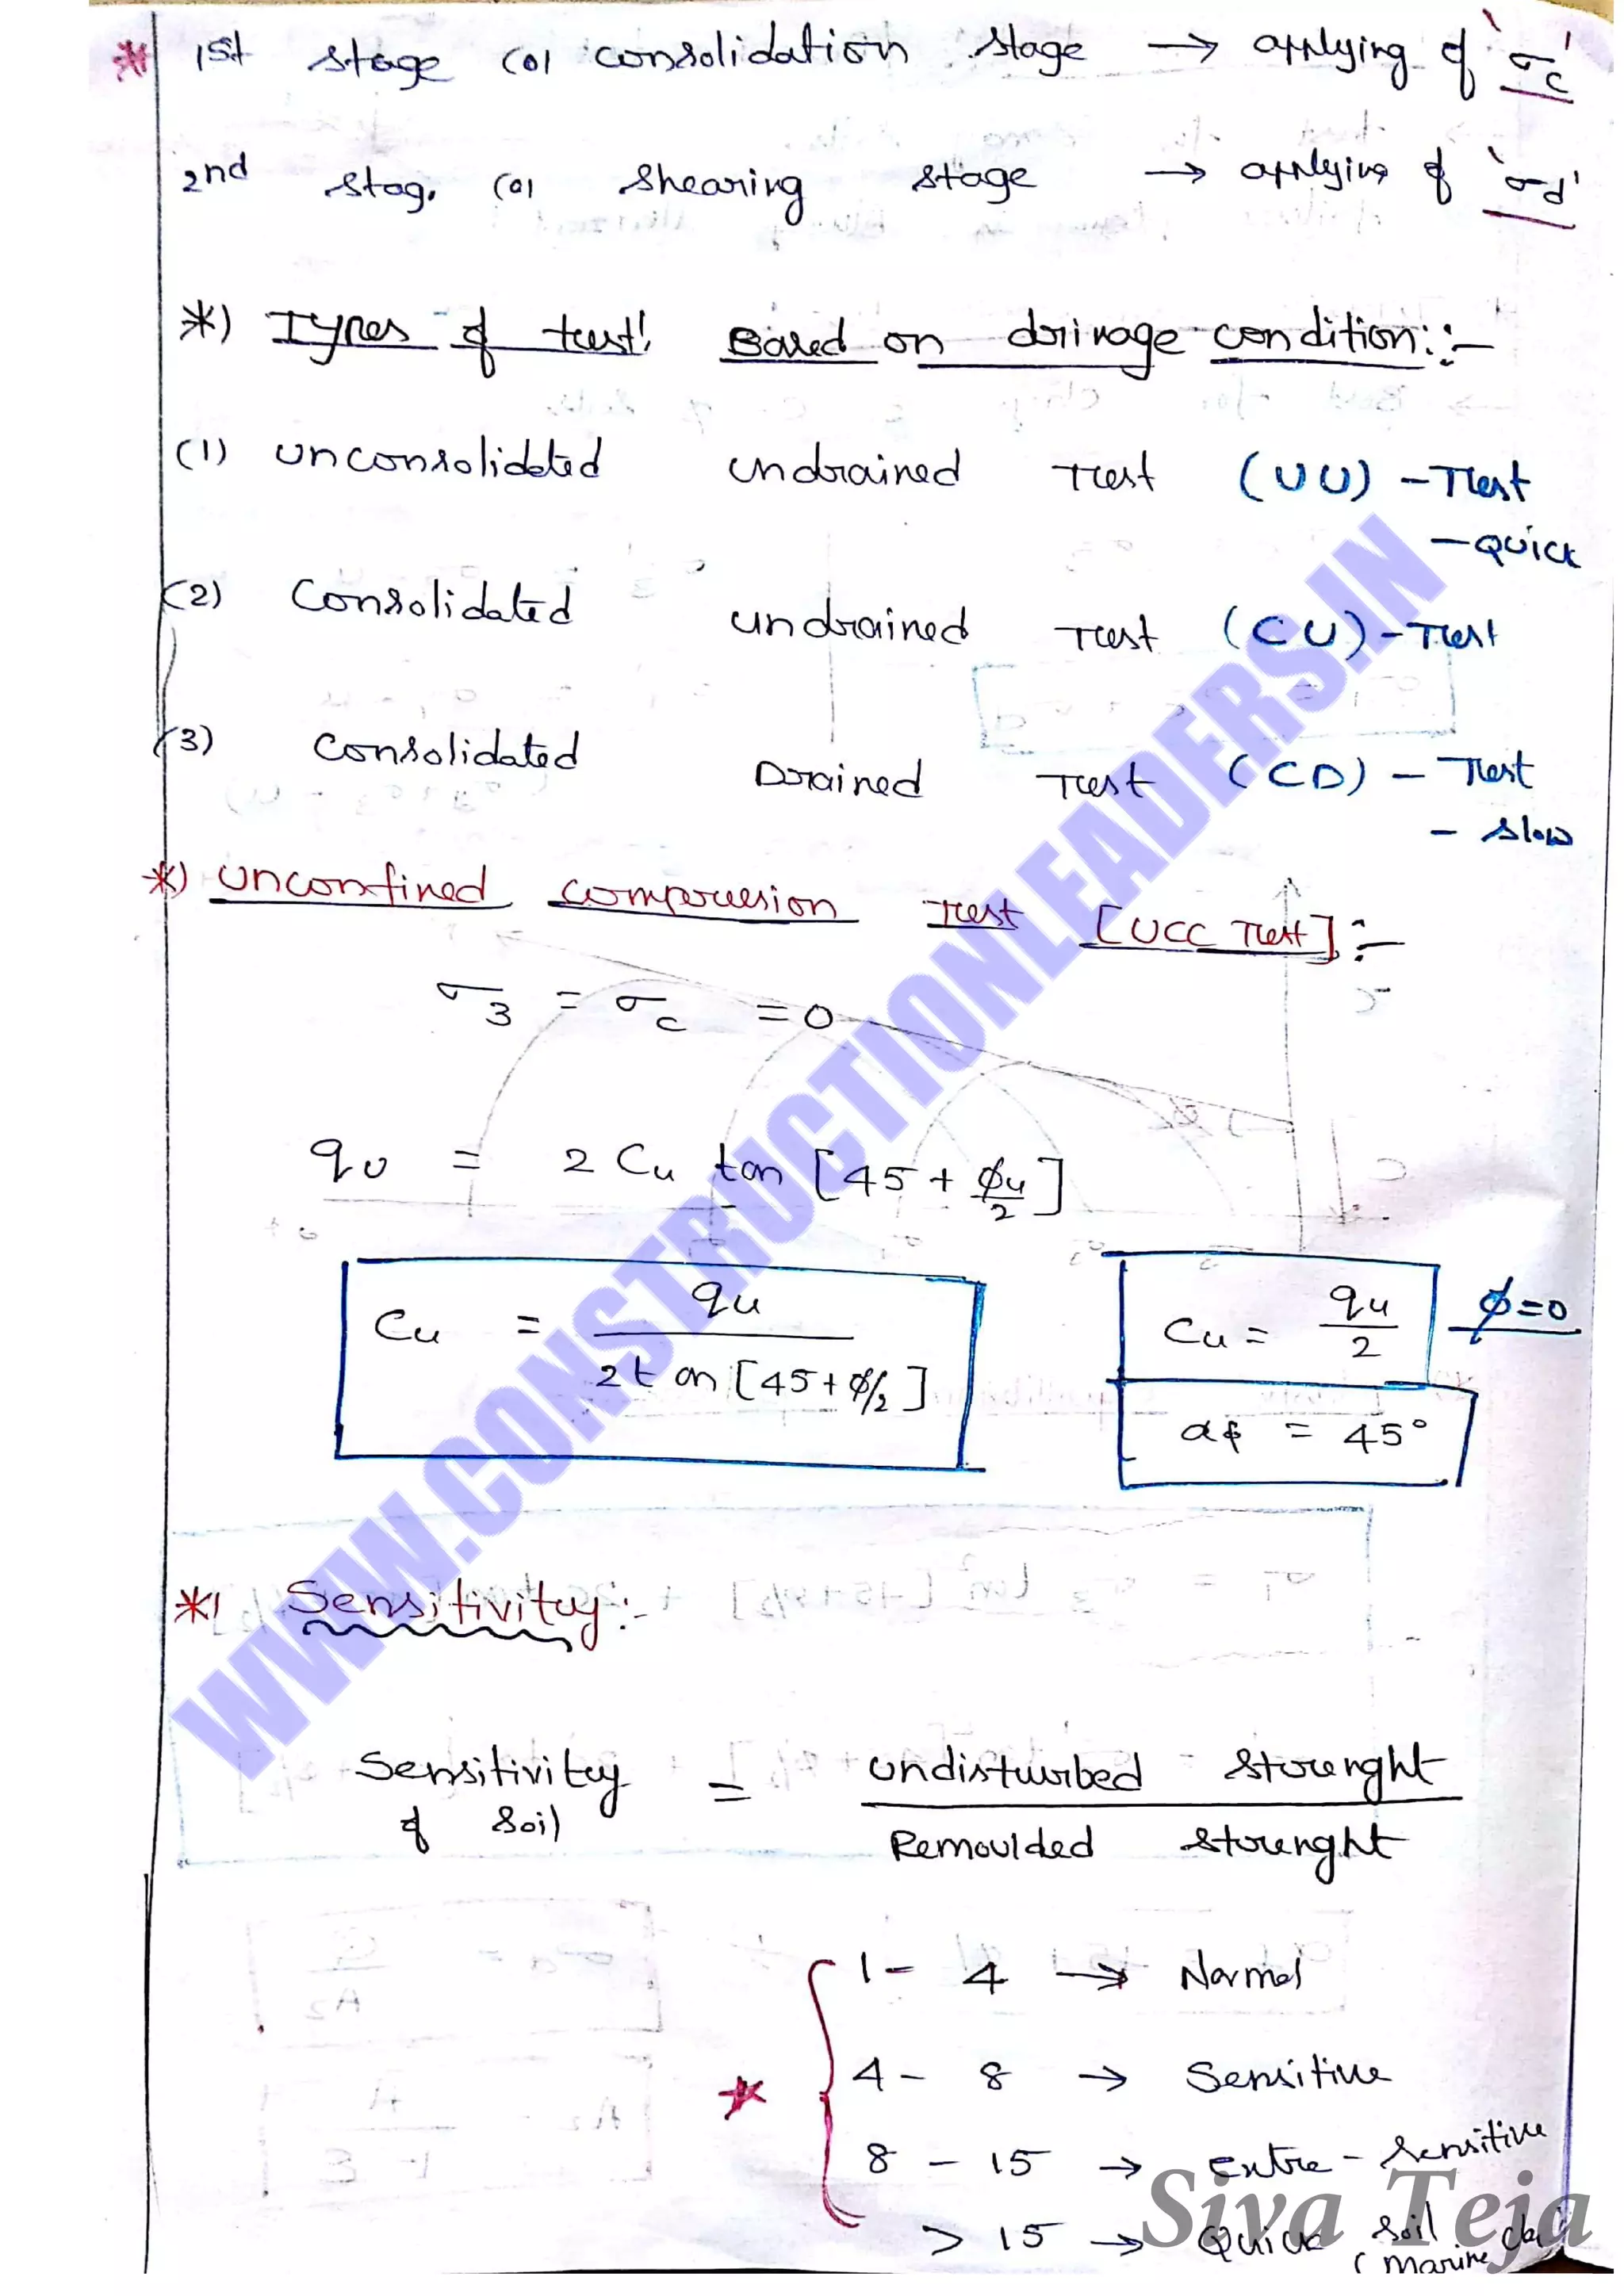 * 1st stage (o) consolidation stage → applying of 'σc'
2nd stag. (o) shearing stage → applying of 'σd'
*) Types of test! Based on drinage condition::-
(1) unconsolidated undrained Test (UU) - Test
- Quick
(2) Consolidated undrained Test (CU) - Test
(3) Consolidated Drained Test (CD) - Test
- slow
*) Unconfined compression Test [UCC Test] :-
σ3 = σc = 0
qu = 2 Cu tan [45 + φu/2]
Cu = qu / 2 tan [45 + φ/2]
Cu = qu/2 φ=0
αf = 45°
*) Sensitivity:-
Sensitivity of soil = undisturbed strenght / Remoulded strenght
1 - 4 → Normal
* 4 - 8 → Sensitive
8 - 15 → Extra - sensitive
> 15 → Quick soil
(marine
WWW.CONSTRUCTIONLEADERS.IN
Siva Teja